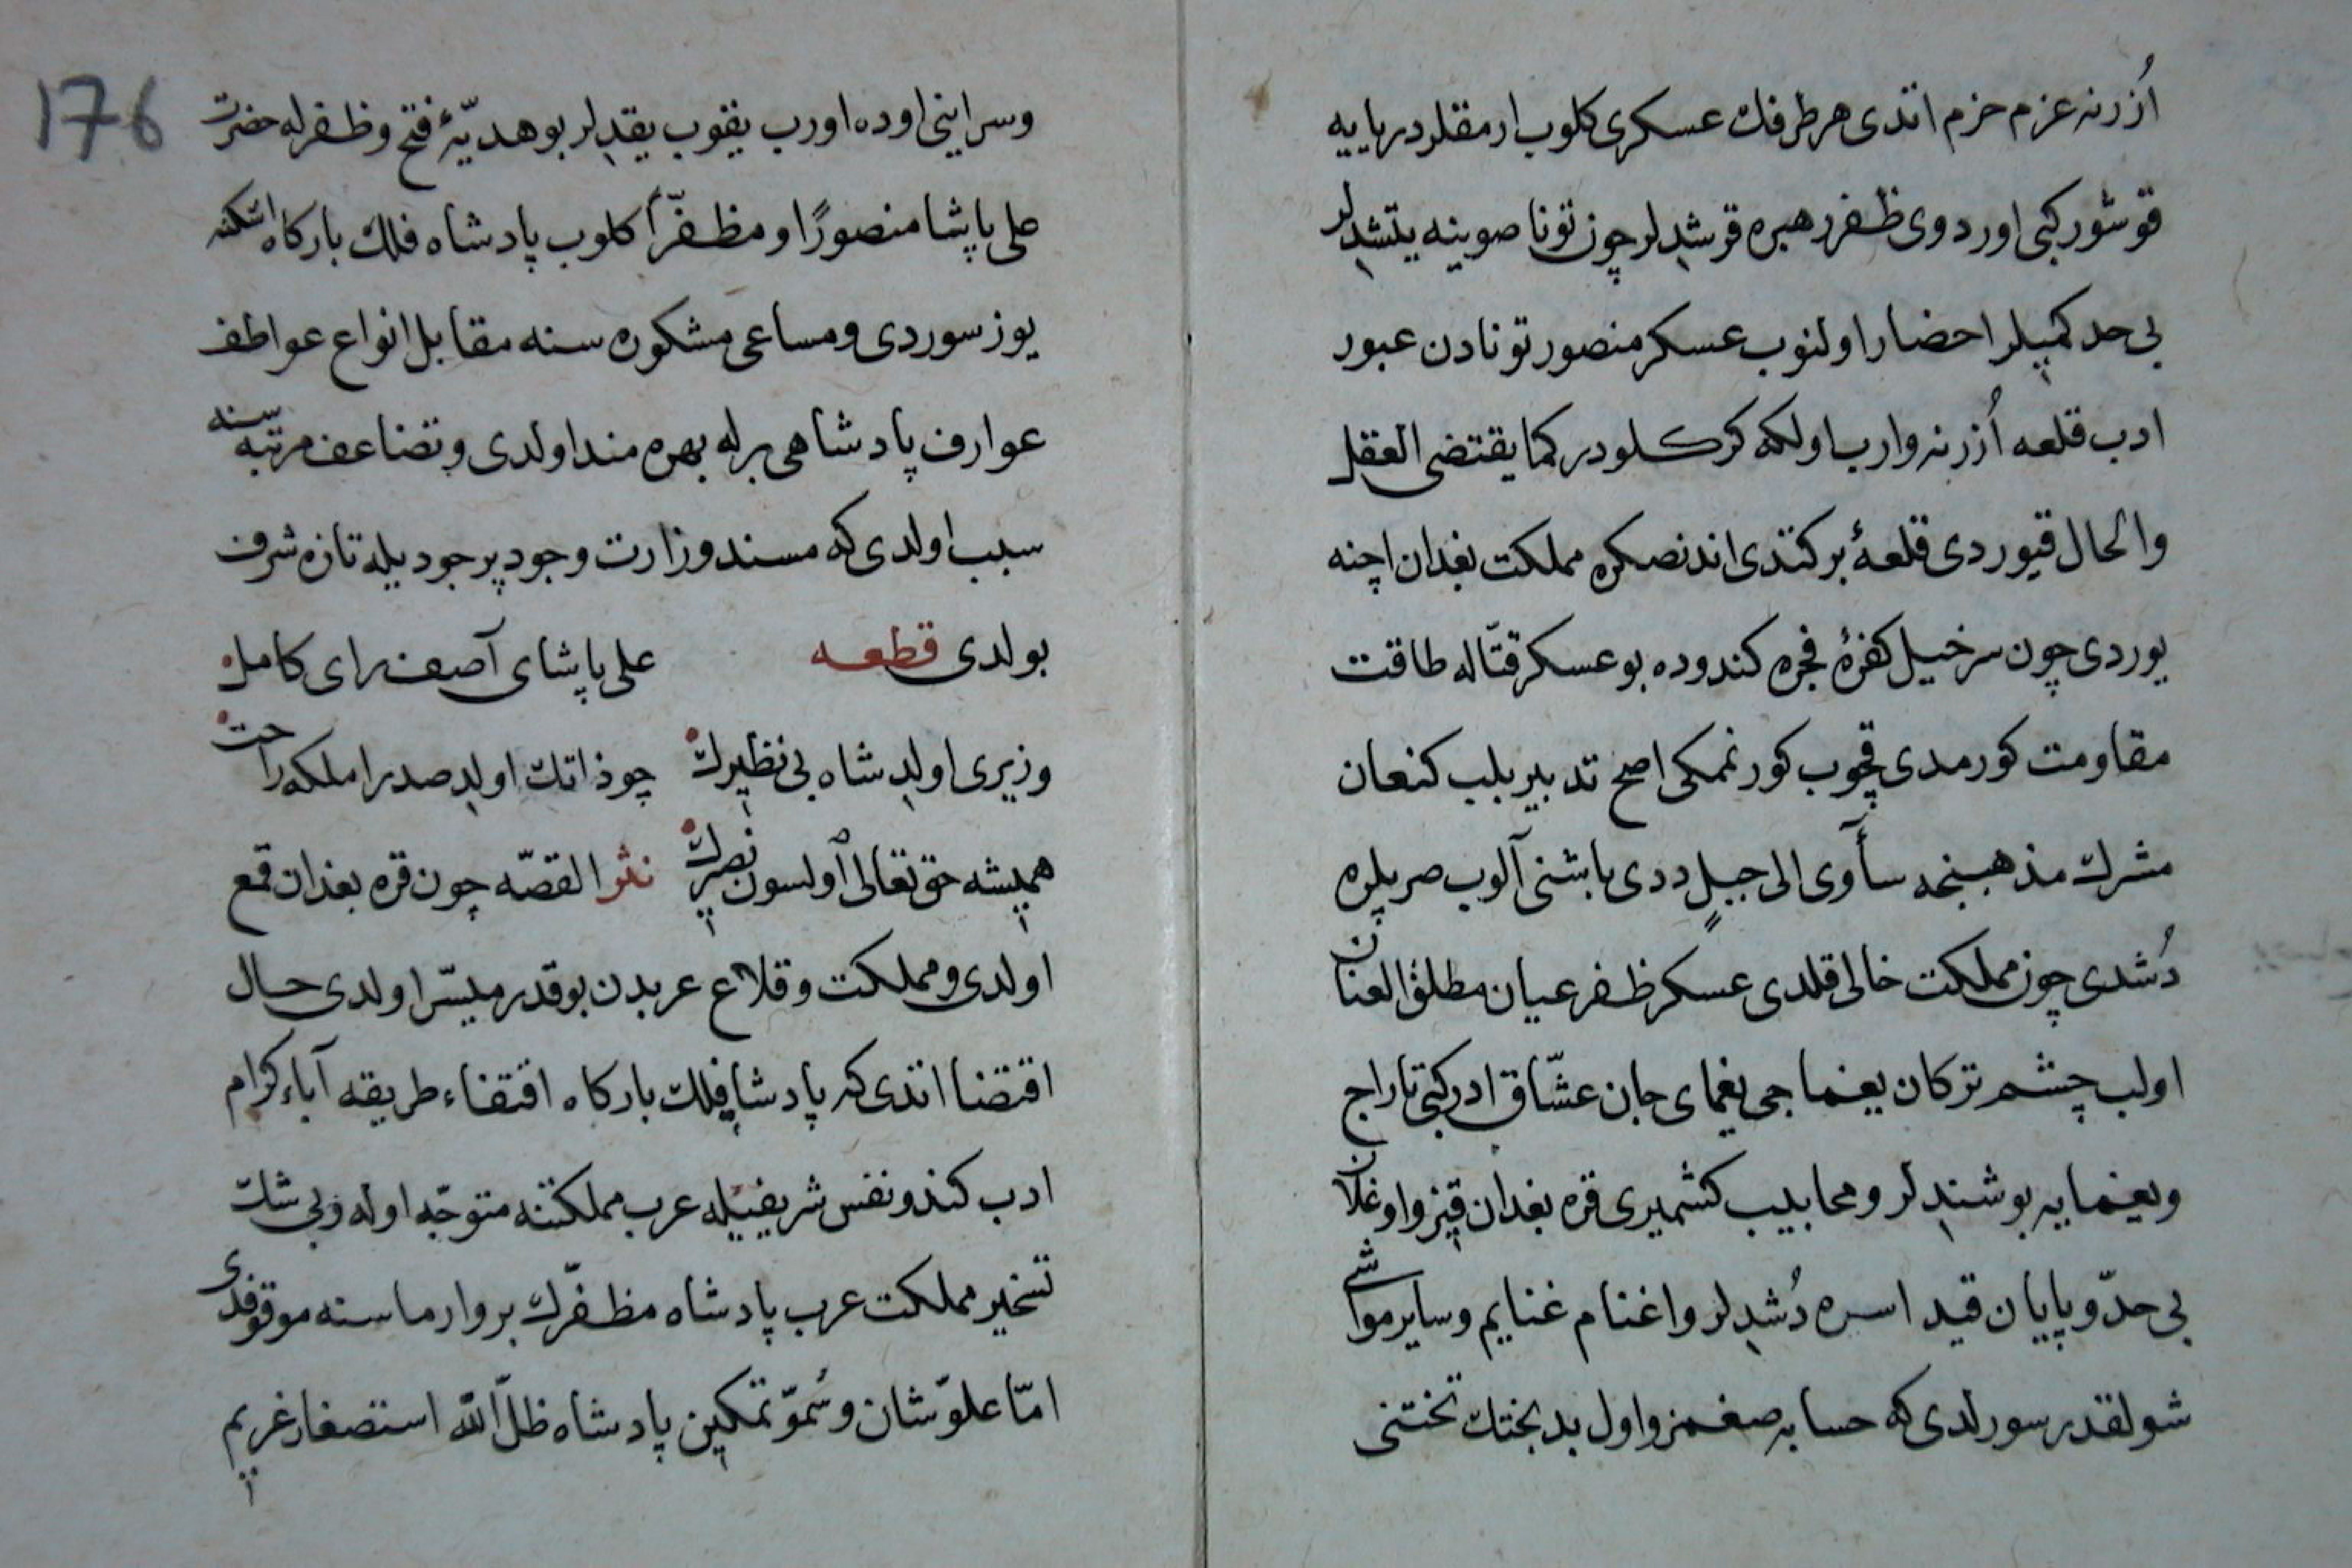 اُزرنه عزم حزم اتدی هر طرفك عسكری كلوب ارمقلر دریایه
قوشور كبی اوردوی ظفر رهبره قرشدلر چون تونا صوینه یتشدلر
بی حد كمیلر احضار اولنوب عسكر منصور تونادن عبور
ادب قلعه اُزرنه وارب اولكه كركلودر كما یقتضی العقل
والحال قیوردی قلعۀ بركتدی اندنصكره مملكت بغدان اچنه
یوردی چون سرخیل كفرۀ فجره كندوده بو عسكر قتّاله طاقت
مقاومت كورمدی قچوب كورنمكی اصح تدبیر بلب كنعان
مشرك مذهبنجه سأوی الی جبلٍ ددی باشنی آلوب صربلره
دُشدی چون مملكت خالی قلدی عسكر ظفر عیان مطلق العنان
اولب چشم تركان یغماجی یغمای جان عشّاق ادر كبی تاراج
ویغمایه بوشندلر ومحابیب كشمیری قره بغدان قیز واوغلان
بی حدّ وپایان قید اسره دُشدلر واغنام غنایم وسایر مواشی
شولقدر سورلدی كه حسابه صغمز واول بدبختك تختنی
176
وسراینی اوده اورب یقوب یقدلر بو هدیّۀ فتح وظفرله حضرت
علی پاشا منصورًا ومظفّراً كلوب پادشاه فلك باركاه اشكنه
یوز سوردی ومساعی مشكوره سنه مقابل انواع عواطف
عوارف پادشاهی برله بهره مند اولدی وتضاعف مرتبه سنه
سبب اولدی كه مسند وزارت وجود پر جودیله تازه شرف
بولدی قطعه علی پاشای آصف رای كامل
وزیری اولدِ شاه بی نظیرك چو ذاتك اولدِ صدرا ملكه راحت
همیشه حق تعالی اولسون نصیرك نثر القصّه چون قره بغدان قمع
اولدی ومملكت وقلاع عربدن بوقدر میسّر اولدی حال
اقتضا اتدی كه پادشاه فلك باركاه اقتفاء طریقه آباء كرام
ادب كندو نفس شریفیله عرب مملكتنه متوجّه اوله وبی شك
تسخیر مملكت عرب پادشاه مظفّرك بر وارماسنه موقوفدی
امّا علوّ شان وسُموّ تمكین پادشاه ظلّ الله استصغار غریم